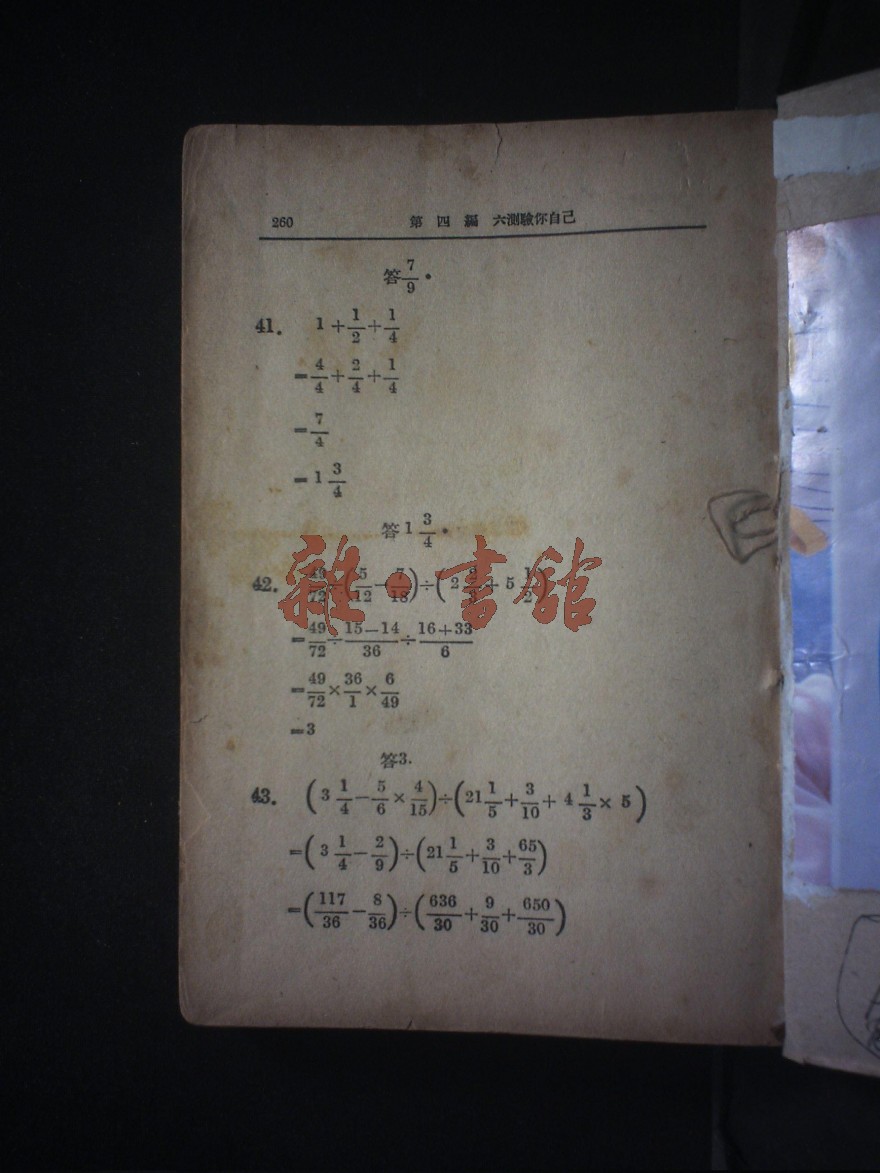 260 第四編 六測驗你自己
答 7/9.
41. 1+1/2+1/4
=4/4+2/4+1/4
=7/4
=1 3/4
答 1 3/4.
42. 49/72÷(5/12-7/18)÷(2 + 5 1/2)
雜·書館
=49/72÷(15-14)/36÷(16+33)/6
=49/72×36/1×6/49
=3
答3.
43. (3 1/4-5/6×4/15)÷(21 1/5+3/10+4 1/3×5)
=(3 1/4-2/9)÷(21 1/5+3/10+65/3)
=(117/36-8/36)÷(636/30+9/30+650/30)